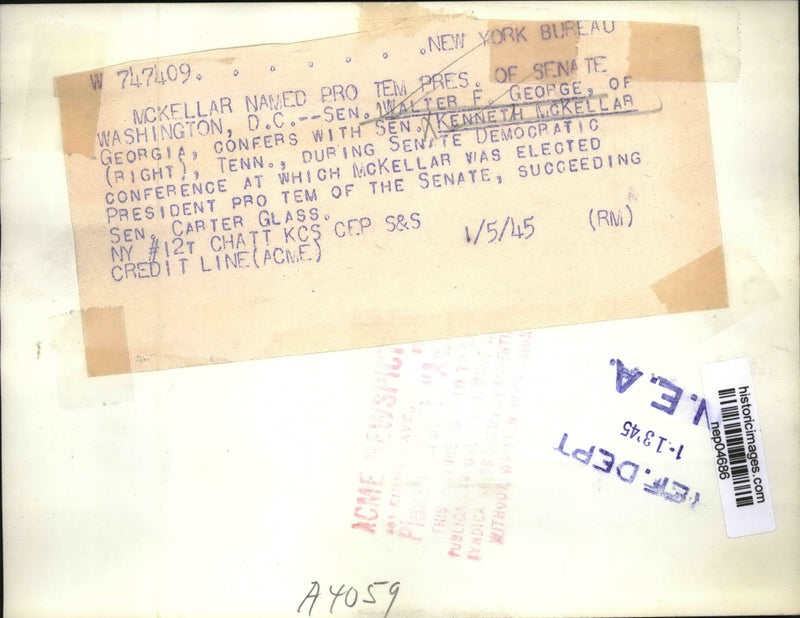 W 747409. . . . . . .NEW YORK BUREAU
MCKELLAR NAMED PRO TEM PRES. OF SENATE
WASHINGTON, D.C.--SEN. WALTER F. GEORGE, OF
GEORGIA, CONFERS WITH SEN. KENNETH MCKELLAR
(RIGHT), TENN., DURING SENATE DEMOCRATIC
CONFERENCE AT WHICH MCKELLAR WAS ELECTED
PRESIDENT PRO TEM OF THE SENATE, SUCCEEDING
SEN. CARTER GLASS.
NY #12T CHATT KCS CEP S&S 1/5/45 (RM)
CREDIT LINE(ACME)
ACME
THIS
WITHOUT WRITTEN
N.E.A.
1-13'45
REF. DEPT
historicimages.com
nep04686
A4059